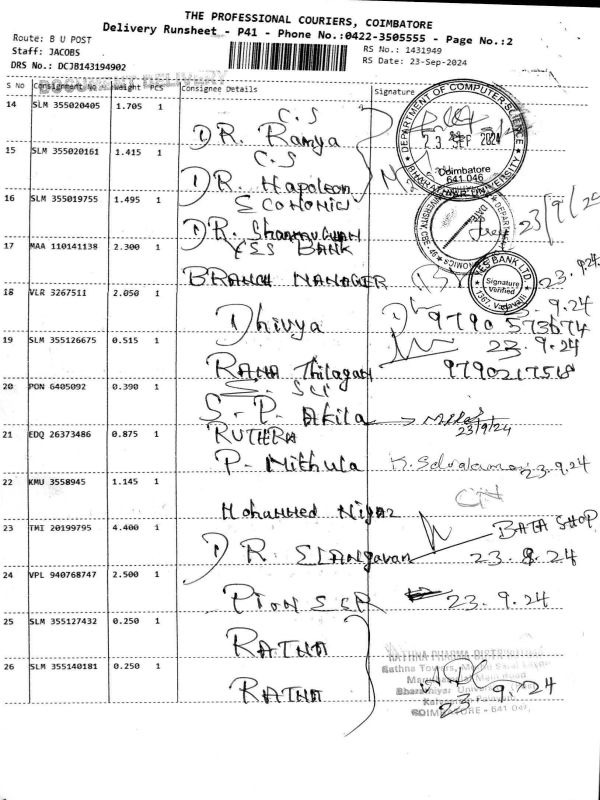 THE PROFESSIONAL COURIERS, COIMBATORE
Delivery Runsheet - P41 - Phone No.:0422-3505555 - Page No.:2
Route: B U POST
RS No.: 1431949
Staff: JACOBS
RS Date: 23-Sep-2024
DRS No.: DCJB143194902
S No Consignment No Weight PCS Consignee Details Signature
14 SLM 355020405 1.705 1 C.S
DR. Ramya
15 SLM 355020161 1.415 1 C.S
DR. Napoleon
16 SLM 355019755 1.495 1 Economic
DR.
17 MAA 110141138 2.300 1 YES BANK
BRANCH MANAGER
18 VLR 3267511 2.050 1
Dhivya
19 SLM 355126675 0.515 1
RANA Thilagam
20 PON 6405092 0.390 1
S. P. Akila
21 EDQ 26373486 0.875 1 RUTHRA
P. Mithula
22 KMU 3558945 1.145 1
Mohammed
23 TMI 20199795 4.400 1
DR.
24 VPL 940768747 2.500 1
PIONEER
25 SLM 355127432 0.250 1
RATNA
26 SLM 355140181 0.250 1
RATNA
DEPARTMENT OF COMPUTER SCIENCE
23 SEP 2024
Coimbatore
641 046
BHARATHIAR UNIVERSITY
23/9/20
YES BANK LTD.
Signature
Verified
23.9.24
23.9.24
9790 573674
23.9.24
9790217518
23/9/24
23.9.24
BATA SHOP
23.9.24
23.9.24
RATHNA PHARMA
Rathna Towers,
Bharathiyar University
COIMBATORE - 641 047
23.9.24